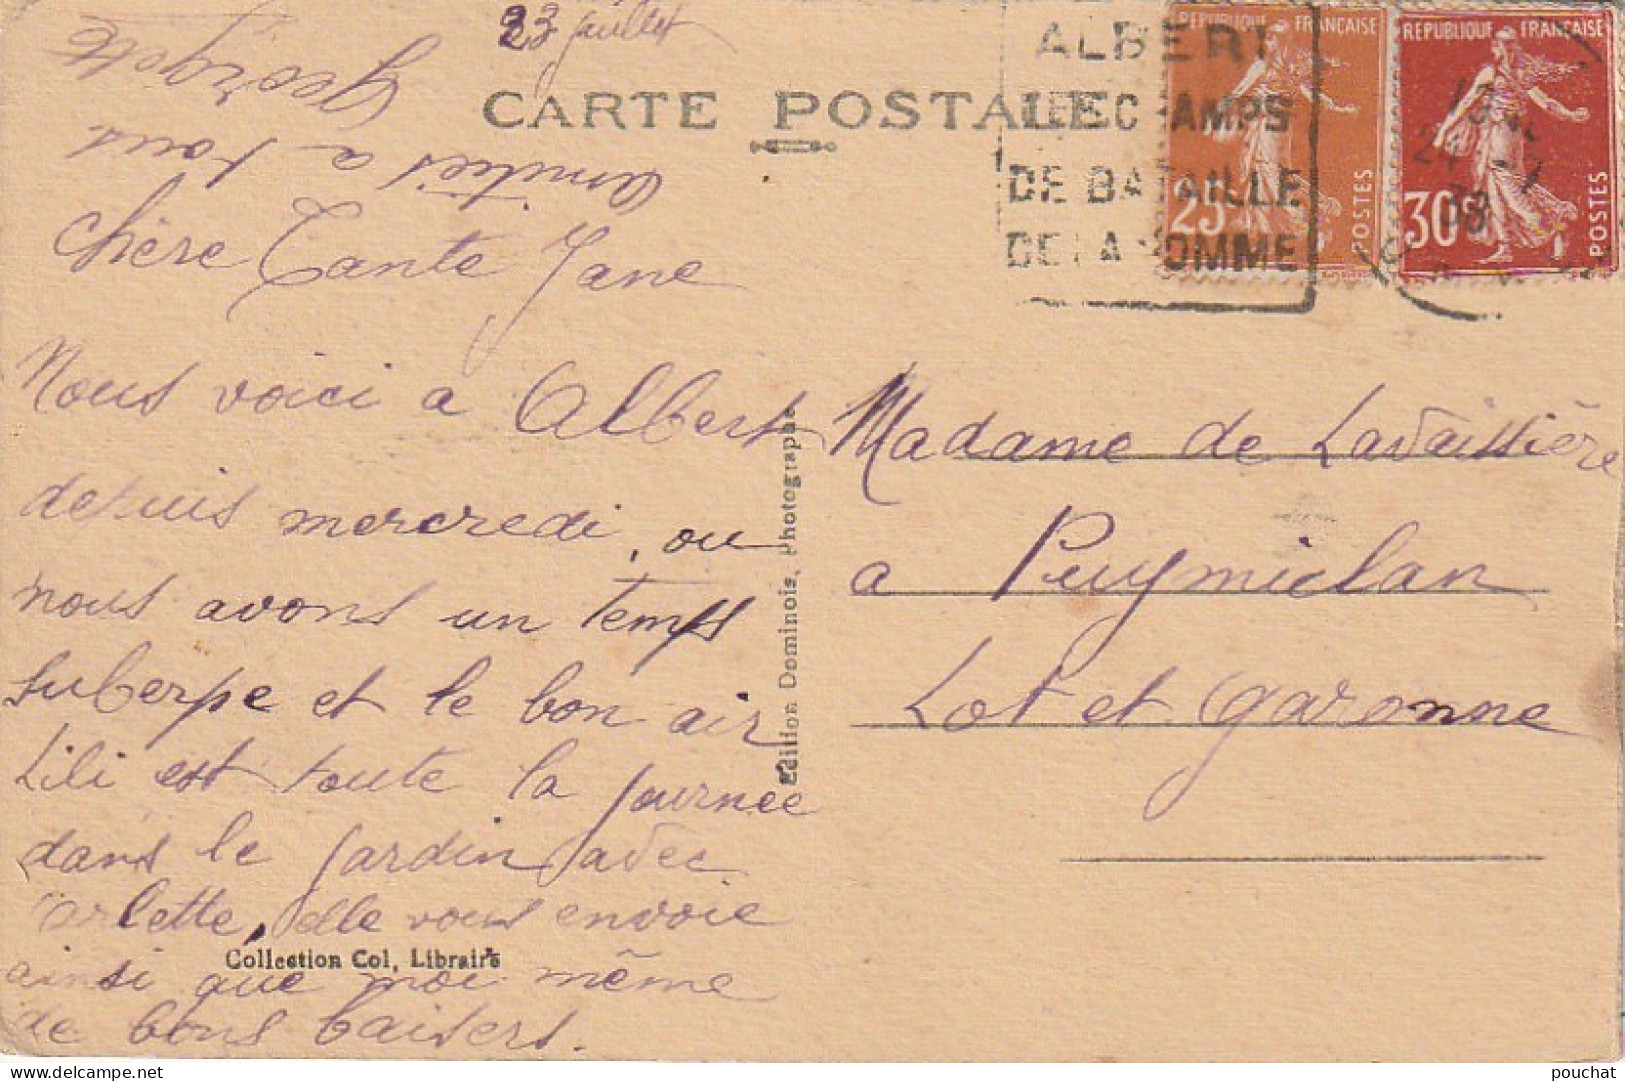 23 juillet
CARTE POSTALE
ALBERT
DE BATAILLE
REPUBLIQUE FRANCAISE
25
POSTES
REPUBLIQUE FRANCAISE
30
POSTES
Chère Tante Jane
Nous voici a Albert
depuis mercredi, ou
nous avons un temps
suberpe et le bon air
Lili est toute la journee
dans le jardin avec
arlette, elle vous envoie
ainsi que moi même
de bons baisers.
amitiés a tous
Georgette
Edition Dominois, Photographe
Collection Col, Libraire
Madame de Lavaissière
a Puymiclan
Lot et garonne
pouchat